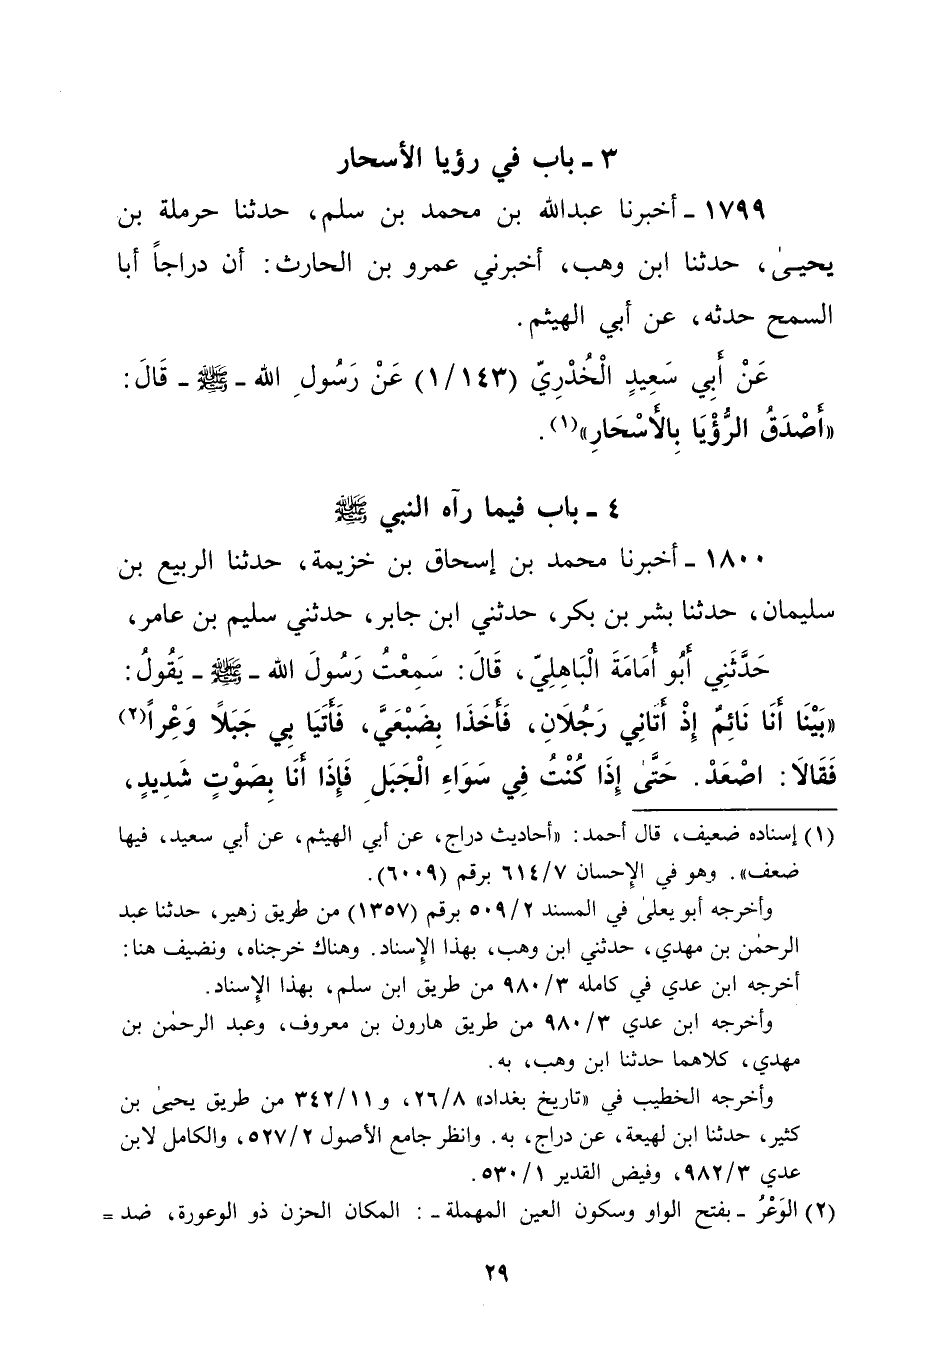 ٣ ـ باب في رؤيا الأسحار
١٧٩٩ ـ أخبرنا عبدالله بن محمد بن سلم، حدثنا حرملة بن
يحيىٰ، حدثنا ابن وهب، أخبرني عمرو بن الحارث: أن دراجاً أبا
السمح حدثه، عن أبي الهيثم.
عَنْ أَبِي سَعِيدٍ الْخُدْرِيّ (١/١٤٣) عَنْ رَسُولِ الله ـ ﷺ ـ قَالَ:
«أَصْدَقُ الرُّؤْيَا بِالأَسْحَارِ»(١).
٤ ـ باب فيما رآه النبي ﷺ
١٨٠٠ ـ أخبرنا محمد بن إسحاق بن خزيمة، حدثنا الربيع بن
سليمان، حدثنا بشر بن بكر، حدثني ابن جابر، حدثني سليم بن عامر،
حَدَّثَنِي أَبُو أُمَامَةَ الْبَاهِلِيّ، قَالَ: سَمِعْتُ رَسُولَ الله ـ ﷺ ـ يَقُولُ:
«بَيْنَا أَنَا نَائِمٌ إِذْ أَتَانِي رَجُلَانِ، فَأَخَذَا بِضَبْعَيَّ، فَأَتَيَا بِي جَبَلًا وَعْراً(٢)
فَقَالَا: اصْعَدْ. حَتَّىٰ إِذَا كُنْتُ فِي سَوَاءِ الْجَبَلِ فَإِذَا أَنَا بِصَوْتٍ شَدِيدٍ،
(١) إسناده ضعيف، قال أحمد: «أحاديث دراج، عن أبي الهيثم، عن أبي سعيد، فيها
ضعف». وهو في الإحسان ٦١٤/٧ برقم (٦٠٠٩).
وأخرجه أبو يعلىٰ في المسند ٥٠٩/٢ برقم (١٣٥٧) من طريق زهير، حدثنا عبد
الرحمٰن بن مهدي، حدثني ابن وهب، بهذا الإسناد. وهناك خرجناه، ونضيف هنا:
أخرجه ابن عدي في كامله ٩٨٠/٣ من طريق ابن سلم، بهذا الإسناد.
وأخرجه ابن عدي ٩٨٠/٣ من طريق هارون بن معروف، وعبد الرحمٰن بن
مهدي، كلاهما حدثنا ابن وهب، به.
وأخرجه الخطيب في «تاريخ بغداد» ٢٦/٨، و ٣٤٢/١١ من طريق يحيىٰ بن
كثير، حدثنا ابن لهيعة، عن دراج، به. وانظر جامع الأصول ٥٢٧/٢، والكامل لابن
عدي ٩٨٢/٣، وفيض القدير ٥٣٠/١.
(٢) الوَعْرُ ـ بفتح الواو وسكون العين المهملة ـ : المكان الحزن ذو الوعورة، ضد =
٢٩